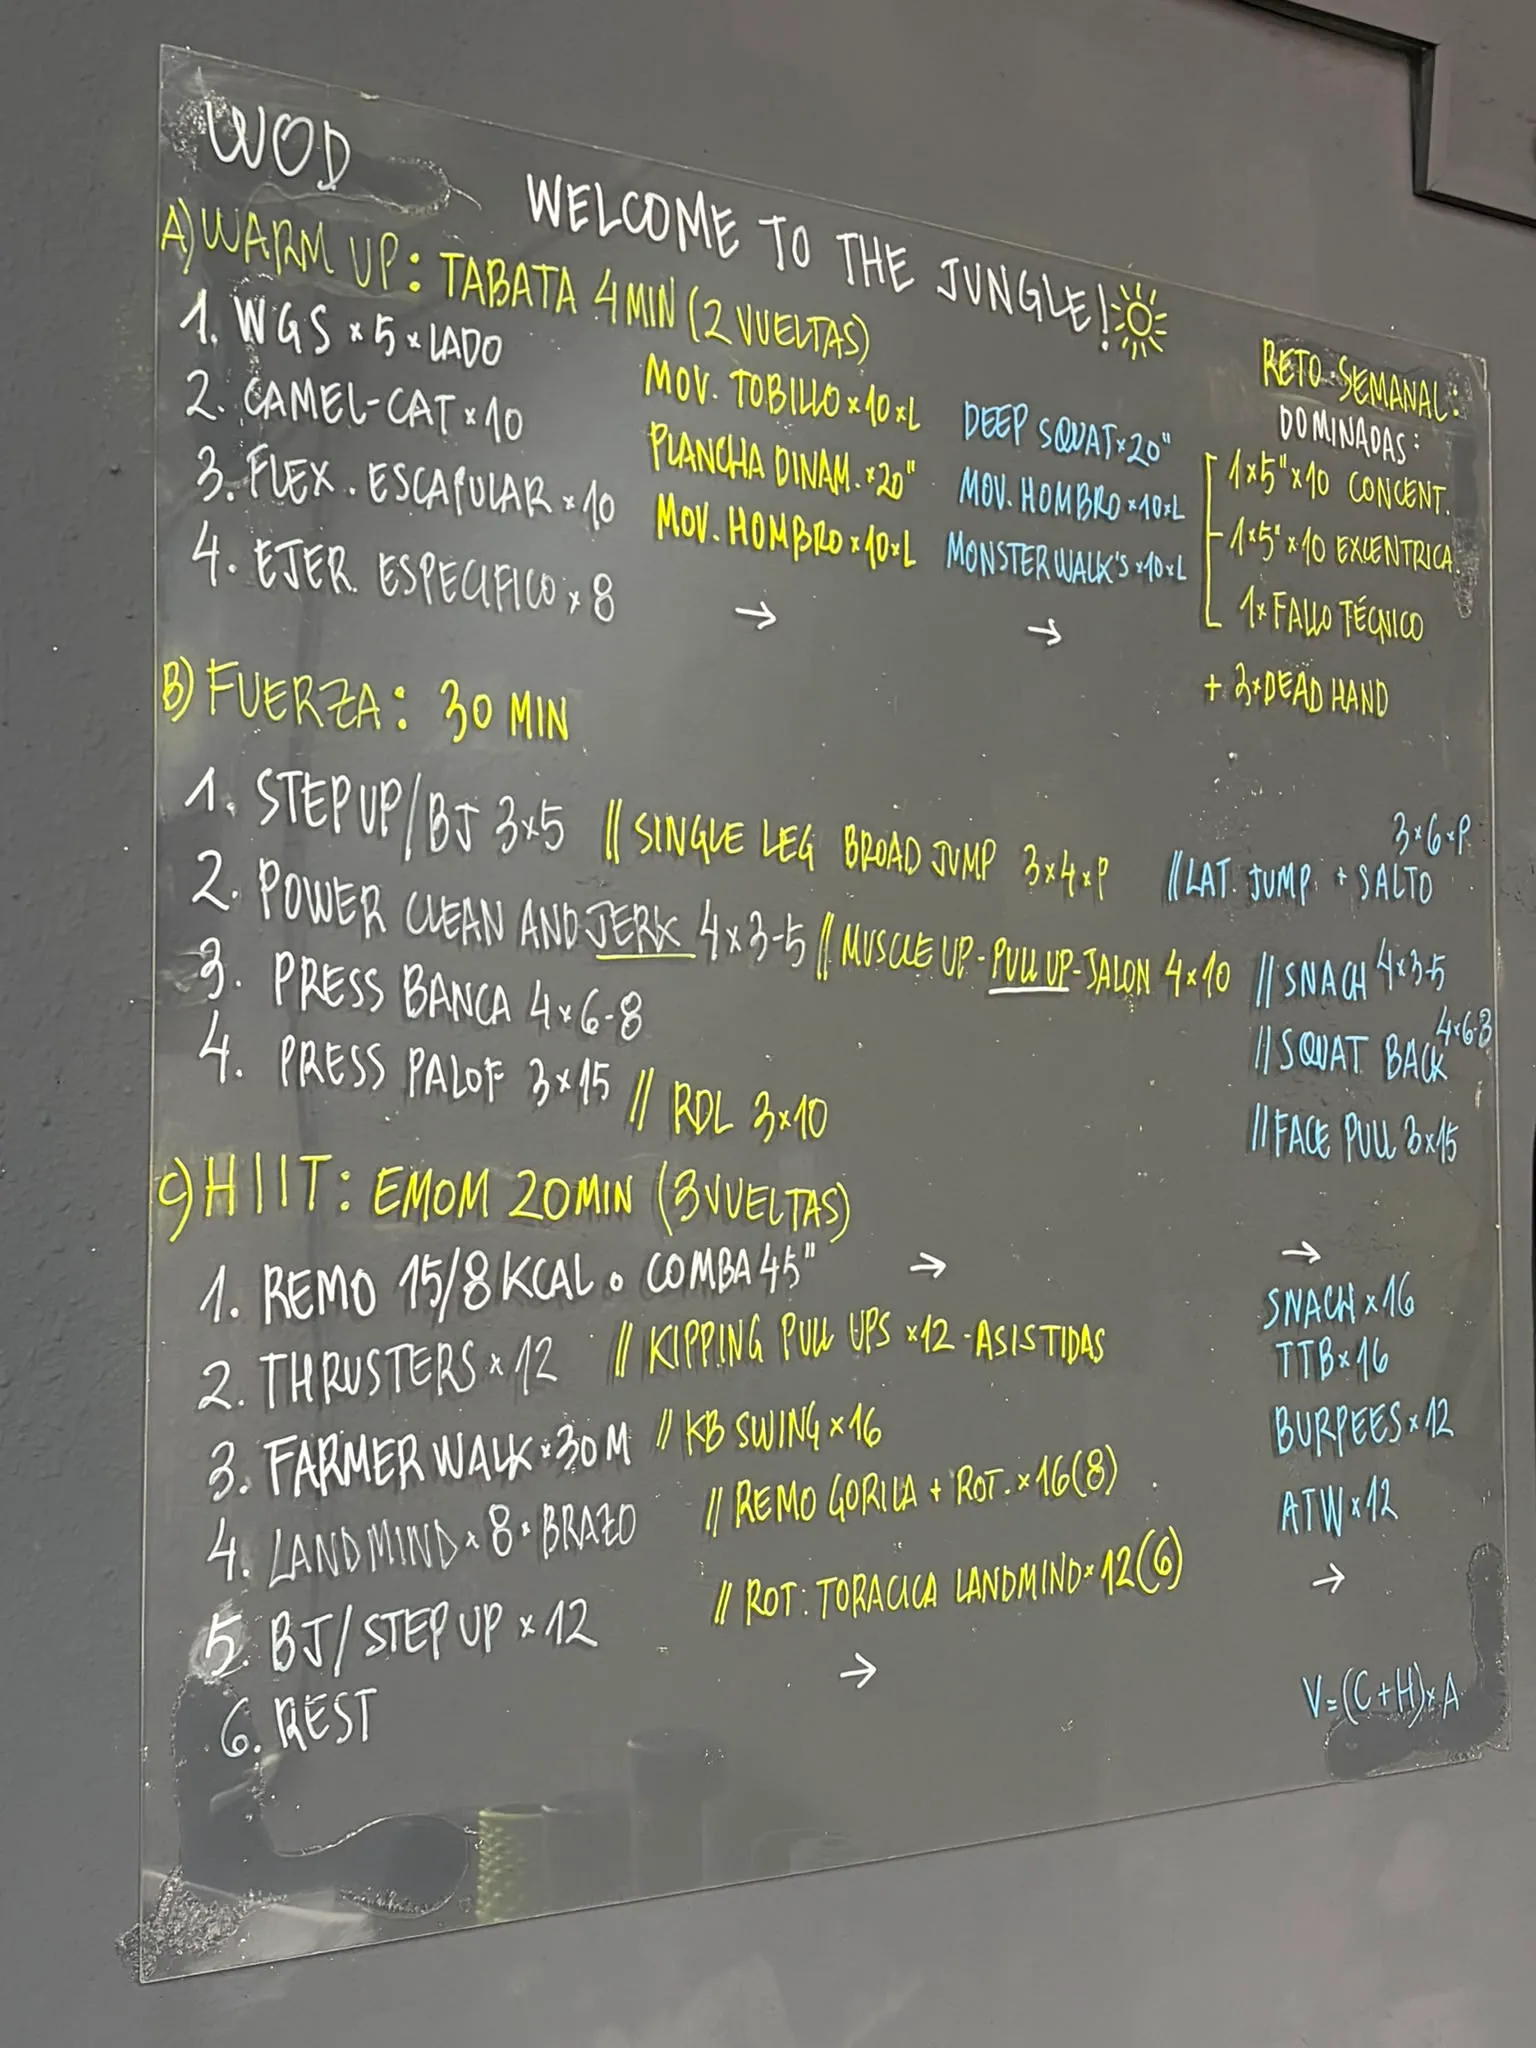 WOD
WELCOME TO THE JUNGLE!
A) WARM UP: TABATA 4 MIN (2 VUELTAS)
1. WGS x 5 x LADO
2. CAMEL-CAT x 10
3. FLEX. ESCAPULAR x 10
4. EJER. ESPECIFICO x 8
MOV. TOBILLO x 10 x L
PLANCHA DINAM. x 20"
MOV. HOMBRO x 10 x L
→
DEEP SQUAT x 20"
MOV. HOMBRO x 10 x L
MONSTER WALK'S x 10 x L
→
RETO SEMANAL:
DOMINADAS:
1x5"x10 CONCENT.
1x5"x10 EXCENTRICA.
1x FALLO TÉCNICO
+ 3x DEAD HAND
B) FUERZA: 30 MIN
1. STEP UP/BJ 3x5 // SINGLE LEG BROAD JUMP 3x4xP // LAT. JUMP + SALTO 3x6xP
2. POWER CLEAN AND JERK 4x3-5 // MUSCLE UP - PULL UP - JALON 4x10 // SNACH 4x3-5
3. PRESS BANCA 4x6-8 // SQUAT BACK
4. PRESS PALOF 3x15 // RDL 3x10 // FACE PULL 3x15
C) HIIT: EMOM 20 MIN (3 VUELTAS)
1. REMO 15/8 KCAL o COMBA 45" → →
2. THRUSTERS x 12 // KIPPING PULL UPS x12 - ASISTIDAS SNACH x 16
3. FARMER WALK x 30 M // KB SWING x 16 TTB x 16
4. LANDMIND x 8 x BRAZO // REMO GORILA + ROT. x 16(8) BURPEES x 12
5. BJ/STEP UP x 12 // ROT: TORACICA LANDMIND x 12(6) ATW x 12
6. REST → →
V=(C+H)xA